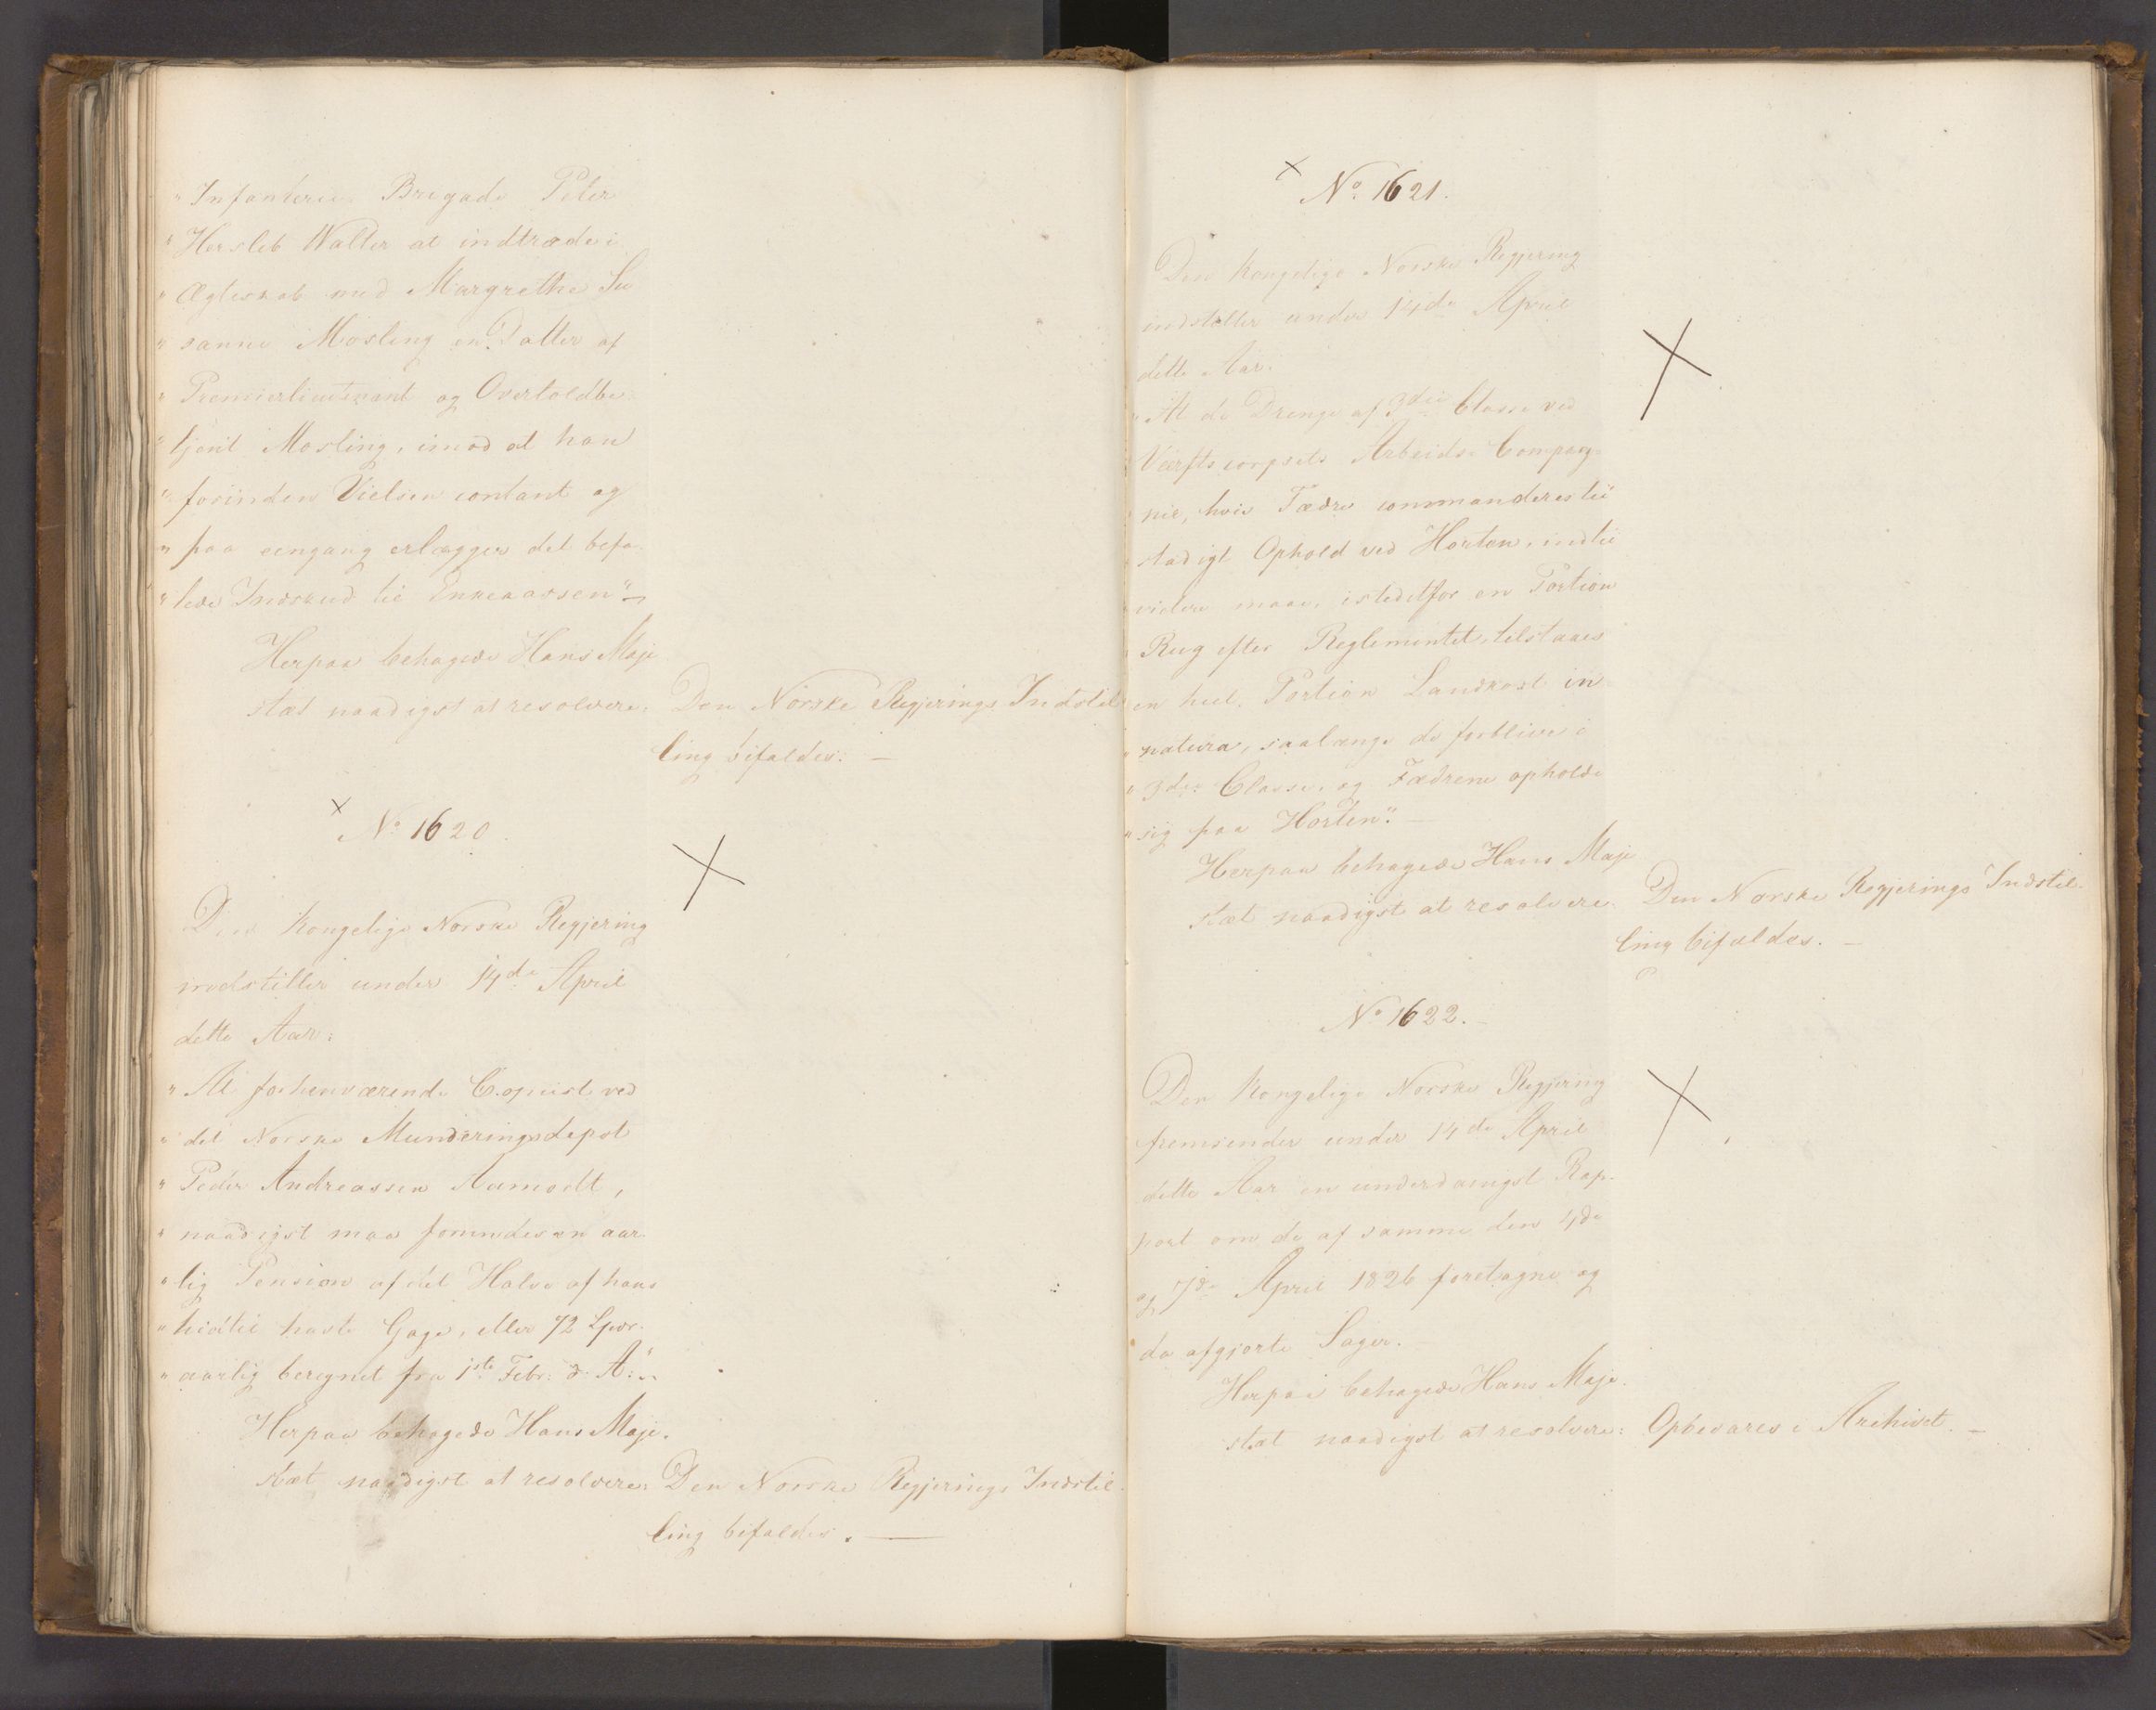 "Infanterie Brigade Peter
"Hersleb Walter at indtræde i
"Ægteskab med Margrethe Su
"sanne Mosling en Datter af
"Premierlieutenant og Overtoldbe
"tjent Mosling, imod at han
"forinden Vielsen contant og
"paa eengang erlægger det befa-
"lede Indskud til Enkecassen"
Herpaa behagede Hans Maje
stæt naadigst at resolvere: Den Norske Regjerings Indstil
ling bifaldes. —
× No 1620.
Den Kongelige Norske Regjering
indstiller under 14de April
dette Aar:
"At forhenværende Copiist ved
"det Norske Munderingsdepot
"Peder Andreassen Aamodt,
"naadigst maa forundes en aar
"lig Pension af det Halve af hans
"hidtil havte Gage, eller 72 Spdr.
"aarlig beregnet fra 1ste Febr: d. A:"
Herpaa behagede Hans Maje-
stæt naadigst at resolvere: Den Norske Regjerings Indstil-
ling bifaldes. —
× No 1621.
Den Kongelige Norske Regjering
indstiller under 14de April
dette Aar:
"At de Drenge af 3die Classe ved
Værfts corpsets Arbeids Compag-
nie, hvis Fædre commanderes til
stadigt Ophold ved Horten, indtil
videre maae, istedetfor en Portion
Rug efter Reglementet, tilstaaes
en heel Portion Landkost in
"natura, saalænge de forblive i
"3die Classe, og Fædrene opholde
"sig paa Horten". —
Herpaa behagede Hans Maje
stæt naadigst at resolvere: Den Norske Regjerings Indstil-
ling bifaldes. —
No 1622. —
Den Kongelige Norske Regjering
fremsender under 14de April
dette Aar en underdanigst Rap-
port om de af samme den 4de
og 7de April 1826 foretagne og
da afgjorte Sager.
Herpaa behagede Hans Maje-
stæt naadigst at resolvere: Opbevares i Archivet. —